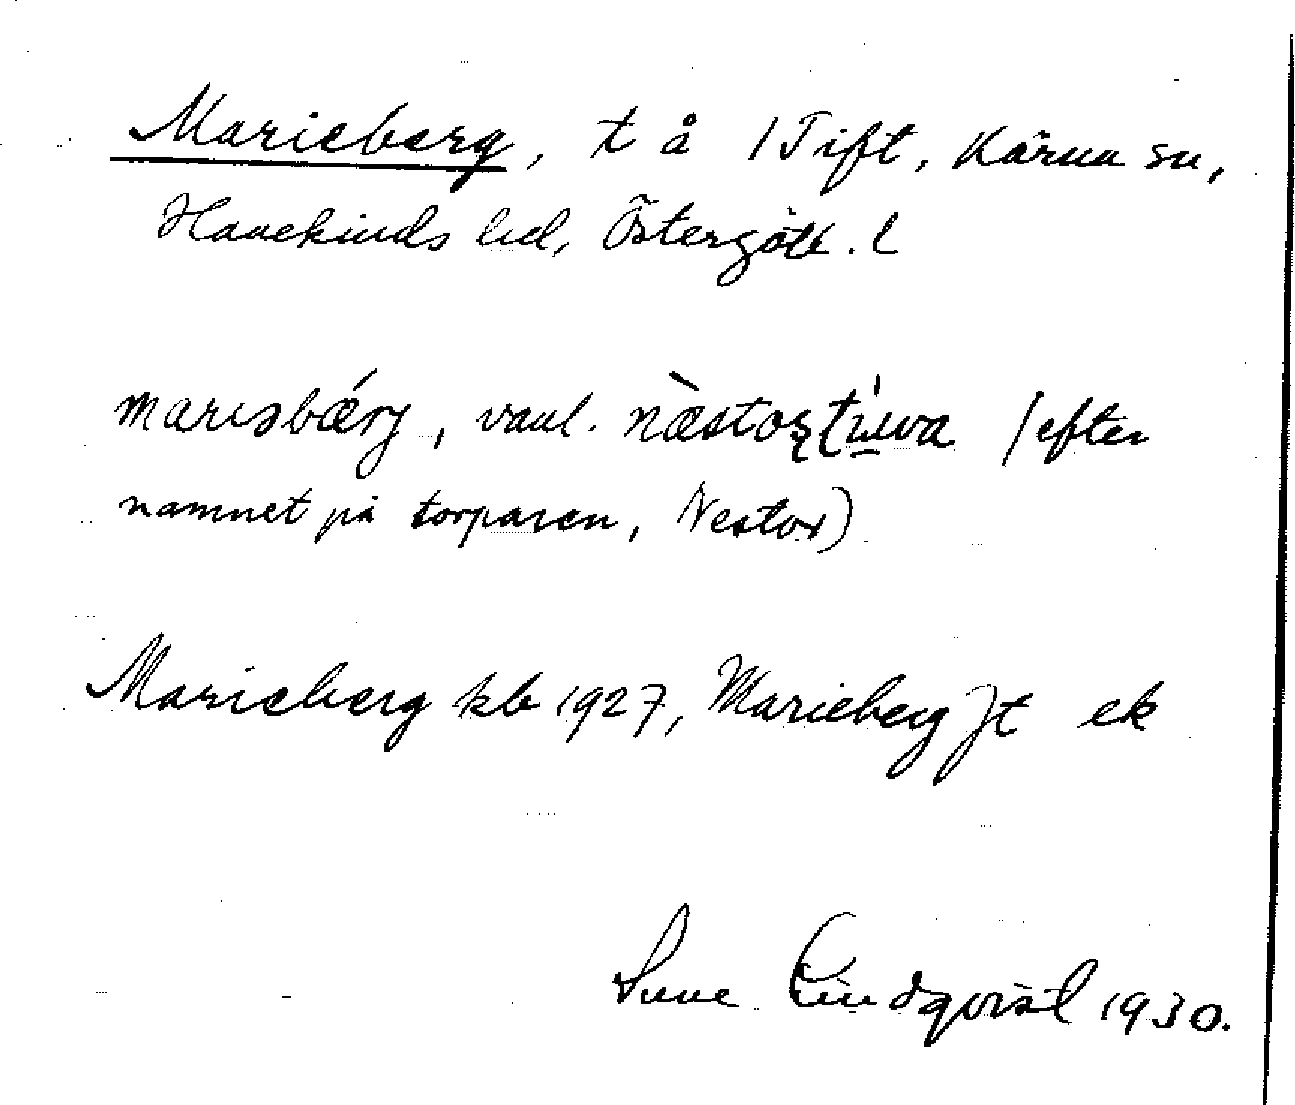 Marieberg, t å 1 Tift, Kärna sn,
Hanekinds hd, Östergötl. l
marɩsbǽrj, vanl. næ̀stoʂtúɯva (efter
namnet på torparen, Nestor)
Marieberg kb 1927, Marieberg jt ek
Sune Lindqvist 1930.